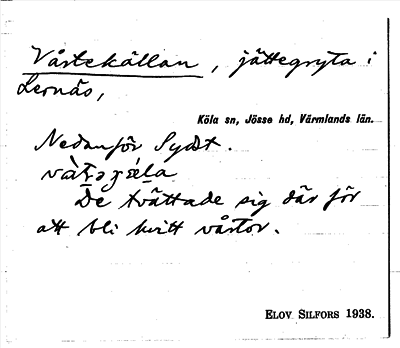 Vårtekällan, jättegryta i
Lernäs,
Köla sn, Jösse hd, Värmlands län.
Nedanför Sydst.
De tvättade sig där för
att bli kvitt vårtor.
ELOV SILFORS 1938.